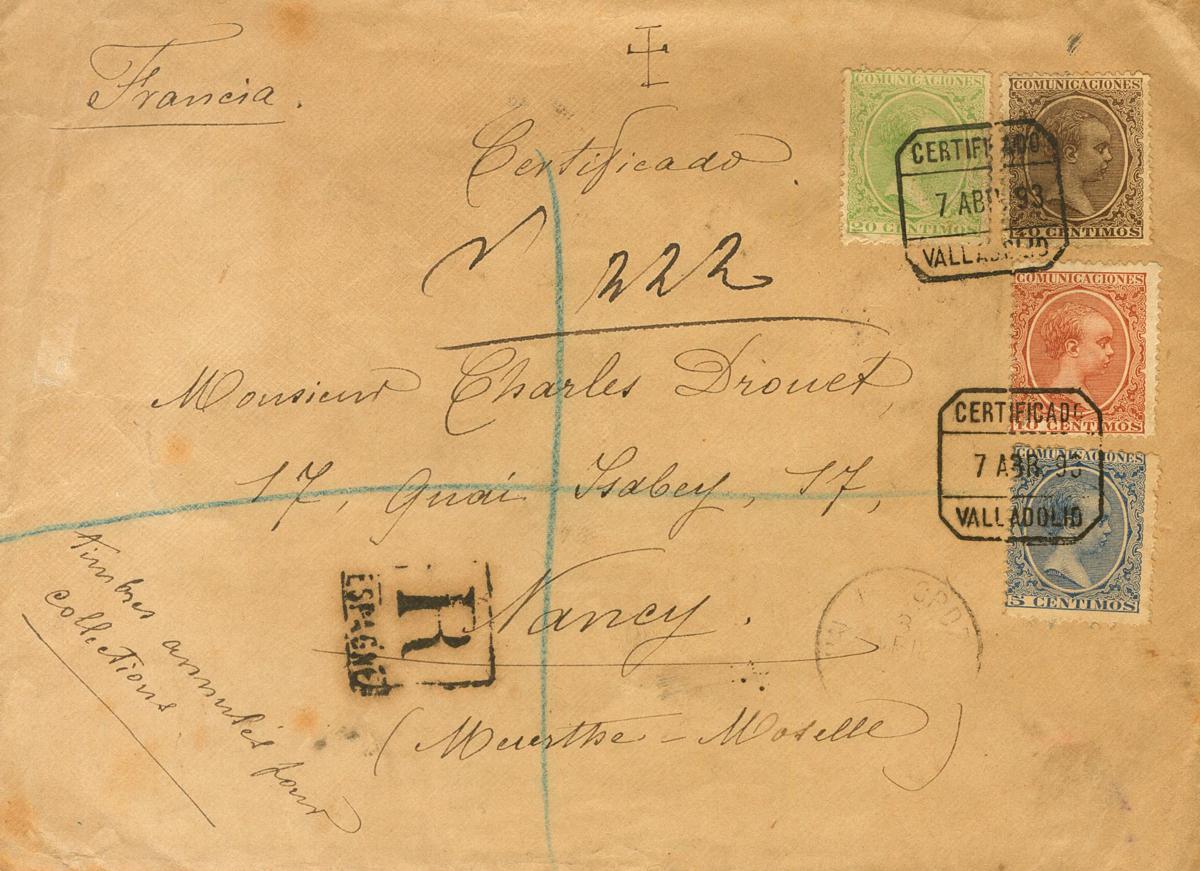 Francia.
Certificado.
222
Monsieur Charles Drouet,
17, Quai Isabey, 17,
Nancy.
(Meurthe-Moselle)
timbres annulés pour
collections
R
ESPAGNE
COMUNICACIONES
20 CENTIMOS
COMUNICACIONES
40 CENTIMOS
CERTIFICADO
7 ABR. 93
VALLADOLID
COMUNICACIONES
10 CENTIMOS
CERTIFICADO
7 ABR. 93
VALLADOLID
COMUNICACIONES
5 CENTIMOS